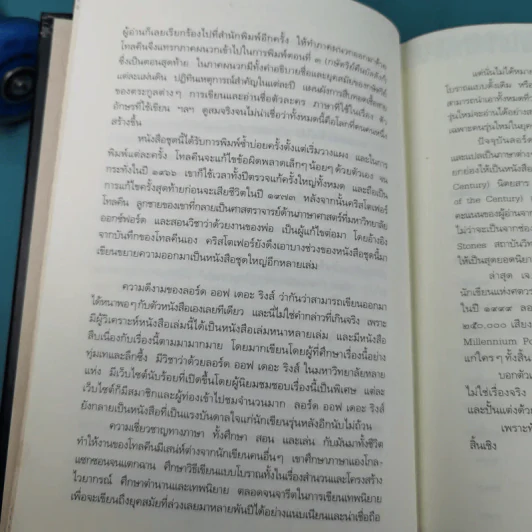 ผู้อ่านก็เลยเรียกร้องไปที่สำนักพิมพ์อีกครั้ง ให้ทำภาคผนวกออกมาด้วย
โทลคีนจึงแทรกภาคผนวกเข้าไปในการพิมพ์ตอนที่ ๓ (กษัตริย์คืนบัลลังก์)
ซึ่งเป็นตอนสุดท้าย ในภาคผนวกมีทั้งคำอธิบายชื่อและยุคสมัยของกษัตริย์
แต่ละแผ่นดิน ปฏิทินเหตุการณ์สำคัญในแต่ละปี แผนผังการสืบทอดเชื้อสาย
ของตระกูลต่างๆ การเขียนและอ่านชื่อตัวละคร ภาษาที่ใช้ในเรื่อง ตัว
อักษรที่ใช้เขียน ฯลฯ ดูสมจริงจนไม่น่าเชื่อว่าทั้งหมดนี้คือโลกที่คนคนหนึ่ง
สร้างขึ้น
หนังสือชุดนี้ได้รับการพิมพ์ซ้ำบ่อยครั้งตั้งแต่เริ่มวางแผง และในการ
พิมพ์แต่ละครั้ง โทลคีนจะแก้ไขข้อผิดพลาดเล็กๆ น้อยๆ ด้วยตัวเอง จน
กระทั่งในปี ๑๙๖๖ เขาก็ใช้เวลาทั้งปีตรวจแก้ครั้งใหญ่ทั้งหมด และถือเป็น
การแก้ไขครั้งสุดท้ายก่อนจะเสียชีวิตในปี ๑๙๗๓ หลังจากนั้นคริสโตเฟอร์
โทลคีน ลูกชายของเขาที่กลายเป็นศาสตราจารย์ด้านภาษาศาสตร์ที่มหาวิทยาลัย
ออกซ์ฟอร์ด และสอนวิชาว่าด้วยงานของพ่อ เป็นผู้แก้ไขต่อมา โดยอ้างอิง
จากบันทึกของโทลคีนเอง คริสโตเฟอร์ยังดึงเอาบางช่วงของหนังสือชุดนี้มา
เขียนขยายความออกมาเป็นหนังสือชุดใหญ่อีกหลายเล่ม
ความดีงามของลอร์ด ออฟ เดอะ ริงส์ ว่ากันว่าสามารถเขียนออกมา
ได้หนาพอๆ กับตัวหนังสือเองเลยทีเดียว และนี่ไม่ใช่คำกล่าวที่เกินจริง เพราะ
มีผู้วิเคราะห์หนังสือเล่มนี้ได้เป็นหนังสือเล่มหนาหลายเล่ม และมีหนังสือ
สืบเนื่องกับเรื่องนี้ตามมามากมาย โดยมากเขียนโดยผู้ที่ศึกษาเรื่องนี้อย่าง
ทุ่มเทและลึกซึ้ง มีวิชาว่าด้วยลอร์ด ออฟ เดอะ ริงส์ ในมหาวิทยาลัยหลาย
แห่ง มีเว็บไซต์นับร้อยที่เปิดขึ้นโดยผู้นิยมชมชอบเรื่องนี้เป็นพิเศษ แต่ละ
เว็บไซต์ก็มีสมาชิกและผู้ท่องเข้าไปชมจำนวนมาก ลอร์ด ออฟ เดอะ ริงส์
ยังกลายเป็นหนังสือที่เป็นแรงบันดาลใจแก่นักเขียนรุ่นหลังอีกนับไม่ถ้วน
ความเชี่ยวชาญทางภาษา ทั้งศึกษา สอน และเล่น กับมันมาทั้งชีวิต
ทำให้งานของโทลคีนมีเสน่ห์ต่างจากนักเขียนคนอื่นๆ เขาศึกษาภาษาแองโกล-
แซกซอนจนแตกฉาน ศึกษาวิธีเขียนแบบโบราณทั้งในเรื่องสำนวนและโครงสร้าง
ไวยากรณ์ ศึกษาตำนานและเทพนิยาย ตลอดจนจารีตในการเขียนเทพนิยาย
เพื่อจะเขียนถึงยุคสมัยที่ล่วงเลยมาหลายพันปีได้อย่างแนบเนียนและน่าเชื่อถือ
แต่นั่นไม่ได้หมาย
โบราณแบบดั้งเดิม หรือ
สามารถนำเอาทั้งหมด
รุ่นใหม่จะอ่านได้อย่าง
เฉพาะคนรุ่นใหม่ใน
ปัจจุบันลอร์ด
และแปลเป็นภาษาต่าง
ยกย่องให้เป็นหนังสือ
Century) นิตยสาร
of the Century) การ
คะแนนของผู้อ่านจาก
ไม่ว่าจะเป็นจากช่อง
Stones สถาบันวิท
ให้เป็นสุดยอดนิยาย
ล่าสุด เจ.
นักเขียนแห่งศตวร
ในปี ๑๙๙๙ ลอ
๒๕๐,๐๐๐ เสียง
Millennium Po
แก่ใครๆ ทั้งสิ้น
บอกตัว
ไม่ใช่เรื่องจริง
และปั้นแต่งตัว
เพราะทั้
สิ้นเชิง